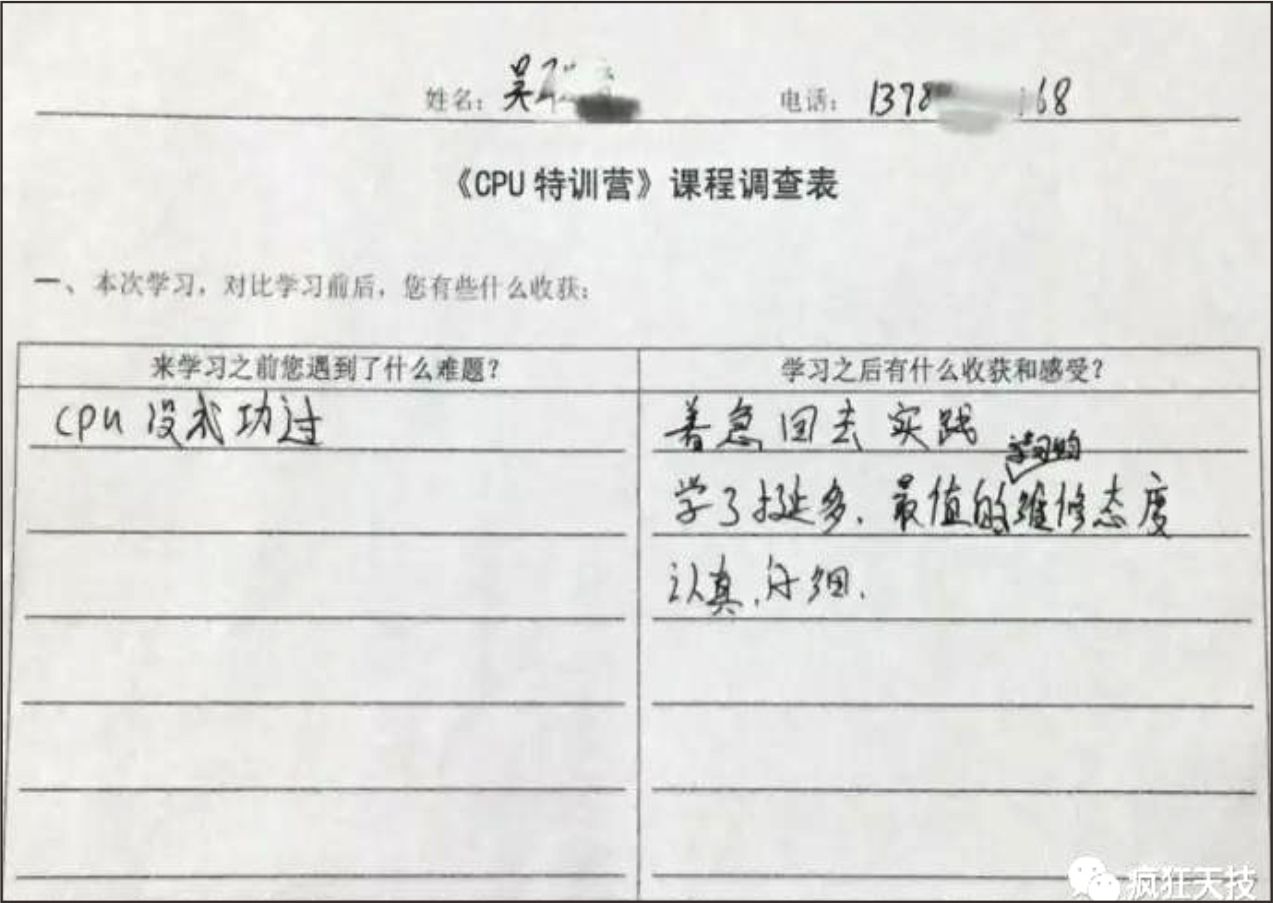 姓名: 吴
电话: 1378 168
《CPU 特训营》课程调查表
一、本次学习，对比学习前后，您有些什么收获:
来学习之前您遇到了什么难题?
学习之后有什么收获和感受?
CPU 没成功过
着急回去实践
学了挺多. 最值的学习的维修态度
认真.仔细.
疯狂天技